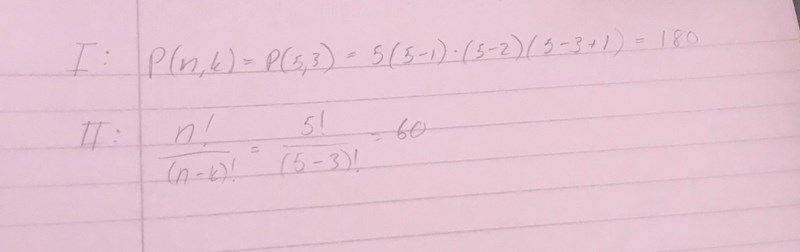 I: P(n,k) = P(5,3) = 5(5-1)·(5-2)(5-3+1) = 180
II: n!/(n-k)! = 5!/(5-3)! = 60